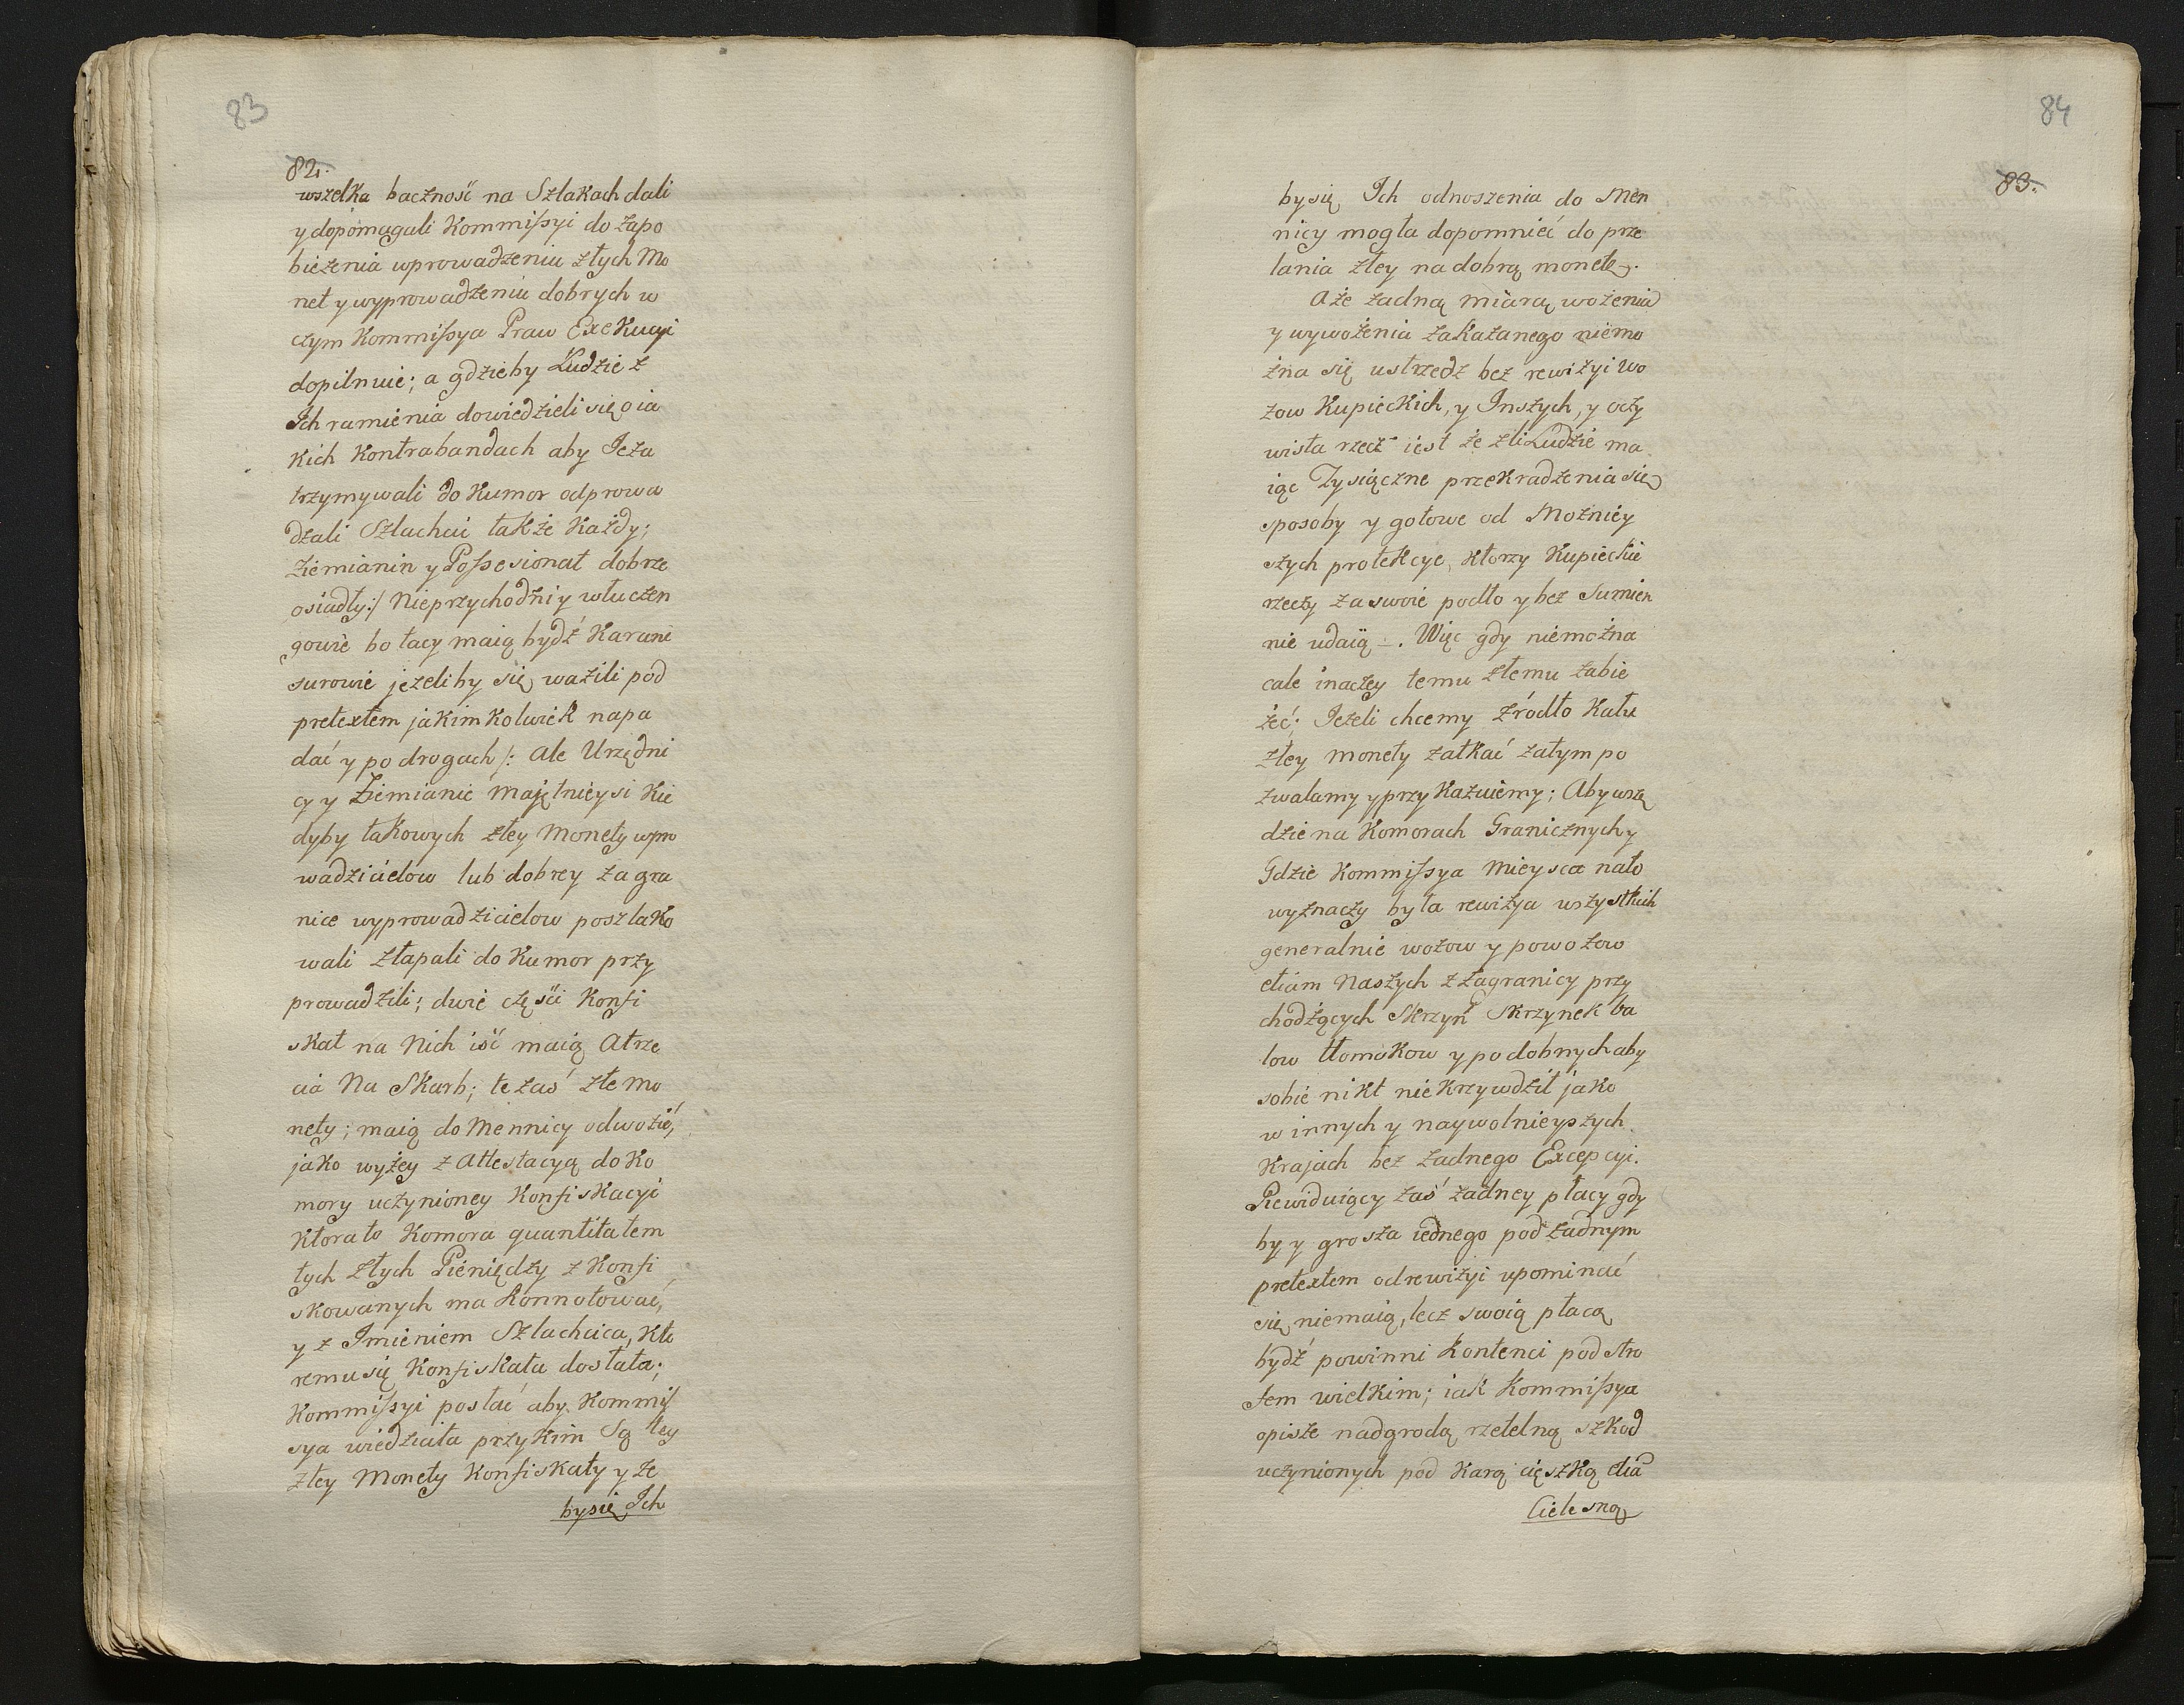 83
82.
wszelka baczność na Szlakach dali
y dopomagali Kommissyi do zapo
bieżenia wprowadzeniu złych Mo
net y wyprowadzeniu dobrych w
czym Kommissya Praw Exekucyi
dopilnuie; a gdzieby Ludzie z
Ich ramienia dowiedzieli się o ia
kich Kontrabandach aby Ie za
trzymywali do Kumor odprowa
dzali Szlachcic także Każdy;
Ziemianin y Possesionat dobrze
osiadły:/ Nieprzychodni y włuczen
gowie bo tacy maią bydź Karani
surowie jeżeliby się ważili pod
pretextem jakimkolwiek napa
dać y po drogach /: ale Urzędni
cy y Ziemianie majętnieysi Kie
dyby takowych złey Monety wpro
wadzicielow lub dobrey za gra
nice wyprowadzicielow poszlako
wali złapali do Kumor przy
prowadzili; dwie części Konfi
skat na Nich iść maią a trze
cia Na Skarb; te zaś złe mo
nety; maią do Mennicy odwozić,
jako wyżey z Attestacyą do Ko
mory uczynioney Konfiskacyi
Ktora to Komora quantitatem
tych złych Pieniędzy z Konfi
skowanych ma Konnotować,
y z Imieniem Szlachcica, Kto
remu się Konfiskata dostała;
Kommissyi posłać aby Kommis
sya wiedziała przy kim Są tey
złey Monety Konfiskaty y że
by się Ich
84
83.
by się Ich odnoszenia do Men
nicy mogła dopomnieć do prze
lania złey na dobrą monetę.
A że żadną miarą wożenia
y wywożenia zakazanego niemo
żna się ustrzedz bez rewizyi Wo
zow Kupieckich, y Inszych, y oczy
wista rzecz iest że zli Ludzie ma
iąc Tysiączne przekradzenia się
sposoby y gotowe od Możniey
szych protekcye, ktorzy Kupieckie
rzeczy za swoie podło y bez Sumien
nie udaią. Więc gdy niemożna
cale inaczey temu złemu zabie
żeć; Ieżeli chcemy źrodło Kału
złey monety zatkać zatym po
zwalamy y przykazuiemy; Aby wszę
dzie na Komorach Granicznych y
Gdzie Kommissya mieysca na to
wyznaczy była rewizya wszystkich
generalnie wozow y powozow
etiam Naszych z zagranicy przy
chodzących Skrzyń Skrzynek ba
low tłomokow y podobnych aby
sobie nikt nie krzywdził jako
w innych y naywolnieyszych
Krajach bez żadnego Excepcyi.
Rewiduiący zaś żadney płacy gdy
by y grosza iednego pod żadnym
pretextem od rewizyi upominać
się niemaią, lecz swoią płacą
bydź powinni kontenci pod stro
fem wielkim; iak Kommissya
opisze nadgrodą rzetelną szkod
uczynionych pod karą cięszką etiā
Cielesną